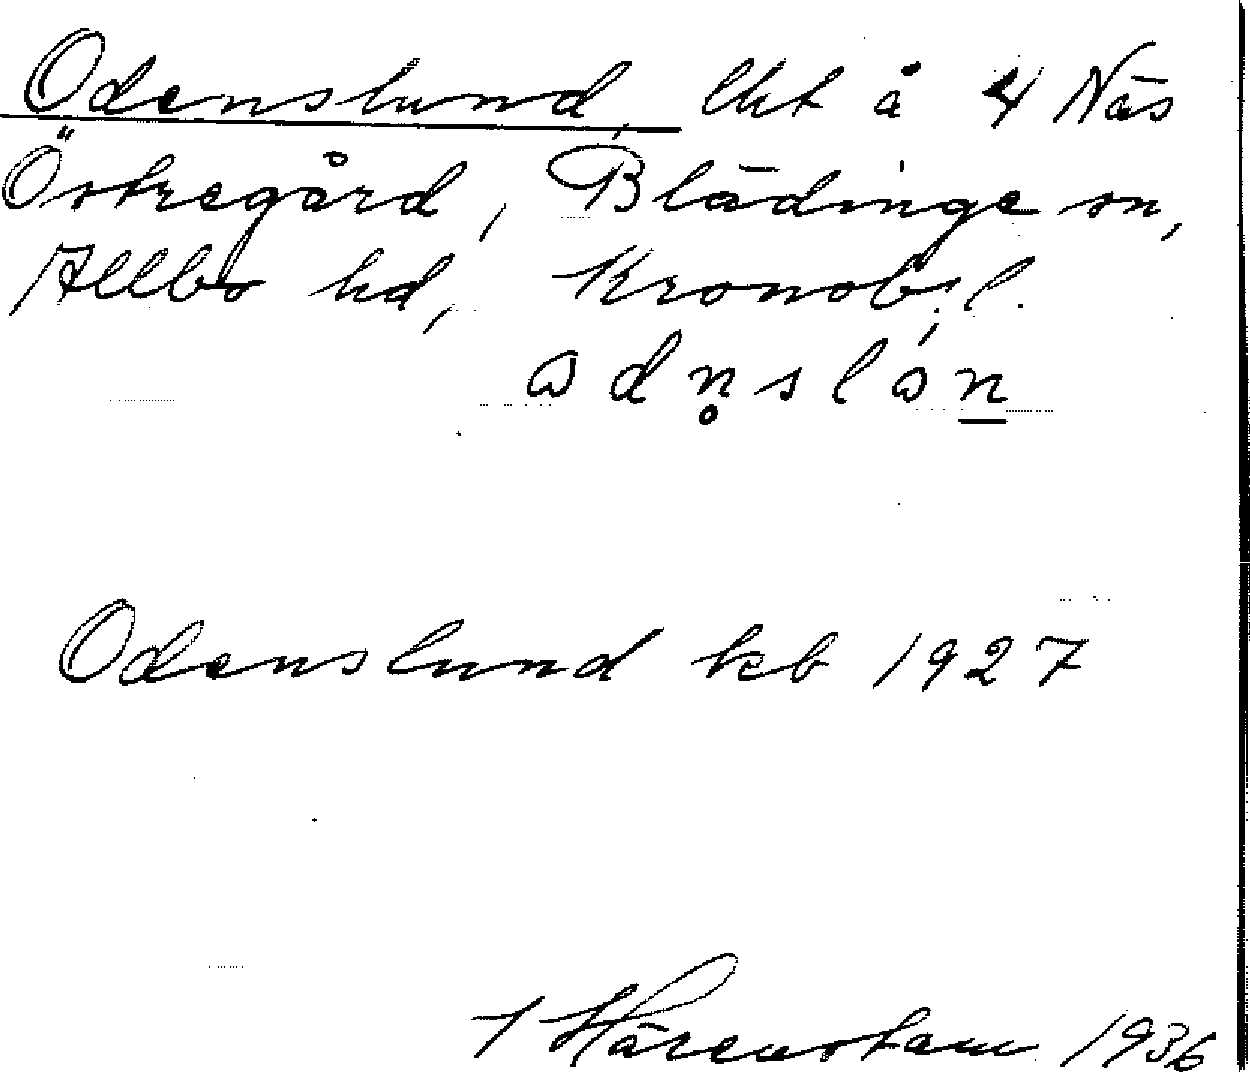 Odenslund, lht å 4 Näs
Östregård, Blädinge sn,
Allbo hd, Kronobs. l.
ɷdn̥slɷ́n̲
Odenslund kb 1927
I Härenstam 1936